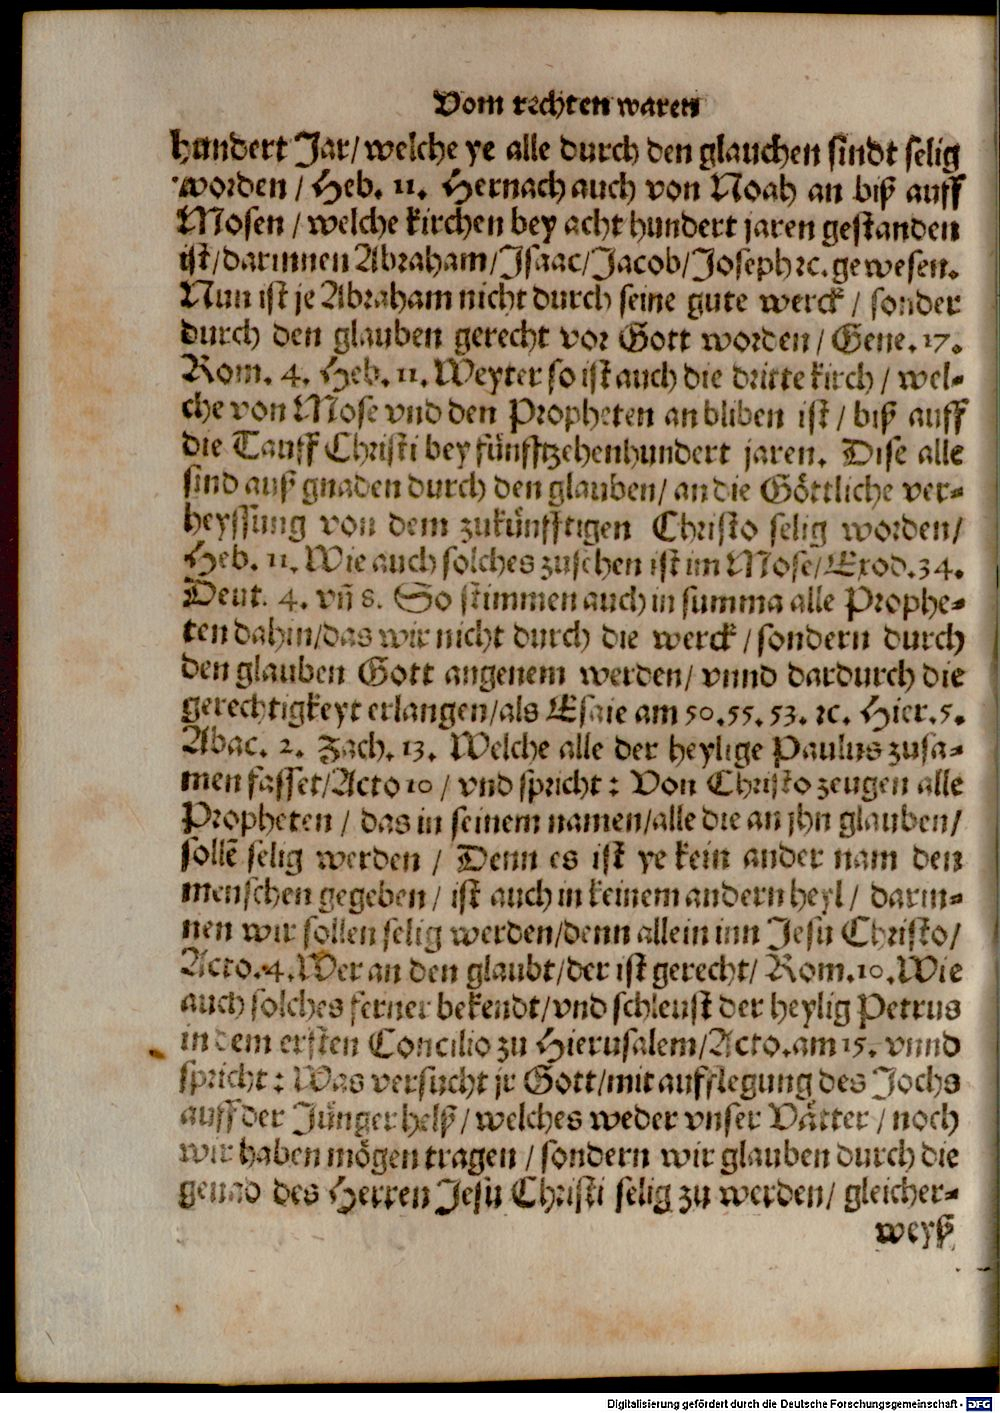 Vom rechten waren
hundert Jar/ welche ye alle durch den glauchen sindt selig
worden / Heb. 11. Hernach auch von Noah an biß auff
Mosen / welche kirchen bey acht hundert jaren gestanden
ist/ darinnen Abraham/ Isaac/ Jacob/ Joseph ꝛc. gewesen.
Nun ist je Abraham nicht durch seine gute werck / sonder
durch den glauben gerecht vor Gott worden / Gene. 17.
Rom. 4. Heb. 11. Weyter so ist auch die dritte kirch / wel-
che von Mose vnd den Propheten an bliben ist / biß auff
die Tauff Christi bey fünfftzehenhundert jaren. Dise alle
sind auß gnaden durch den glauben/ an die Göttliche ver-
heyssung von dem zukünfftigen Christo selig worden/
Heb. 11. Wie auch solches zusehen ist im Mose/ Exod. 34.
Deut. 4. vñ 8. So stimmen auch in summa alle Prophe-
ten dahin/ das wir nicht durch die werck / sondern durch
den glauben Gott angenem werden/ vnnd dardurch die
gerechtigkeyt erlangen/ als Esaie am 50. 55. 53. ꝛc. Hier. 5.
Abac. 2. Zach. 13. Welche alle der heylige Paulus zusa-
men fasset/ Acto 10 / vnd spricht : Von Christo zeugen alle
Propheten / das in seinem namen/ alle die an jhn glauben/
sollẽ selig werden / Denn es ist ye kein ander nam den
menschen gegeben / ist auch in keinem andern heyl / darin-
nen wir sollen selig werden/ denn allein inn Jesu Christo/
Acto. 4. Wer an den glaubt/ der ist gerecht/ Rom. 10. Wie
auch solches ferner bekendt/ vnd schleust der heylig Petrus
in dem ersten Concilio zu Hierusalem/ Acto. am 15. vnnd
spricht : Was versucht jr Gott/ mit aufflegung des Jochs
auff der Jünger helß / welches weder vnser Vätter / noch
wir haben mögen tragen / sondern wir glauben durch die
genad des Herren Jesu Christi selig zu werden/ gleicher-
weyß
Digitalisierung gefördert durch die Deutsche Forschungsgemeinschaft - DFG